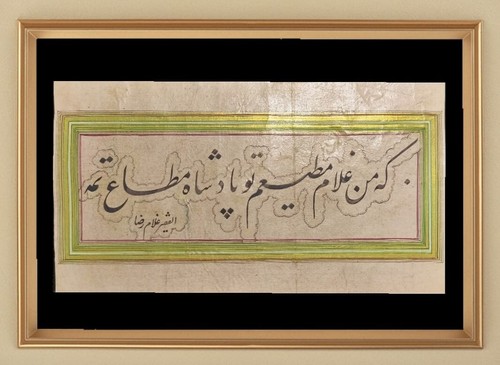 که من غلام مطیعم تو پادشاه مطاع
الفقیر غلامرضا